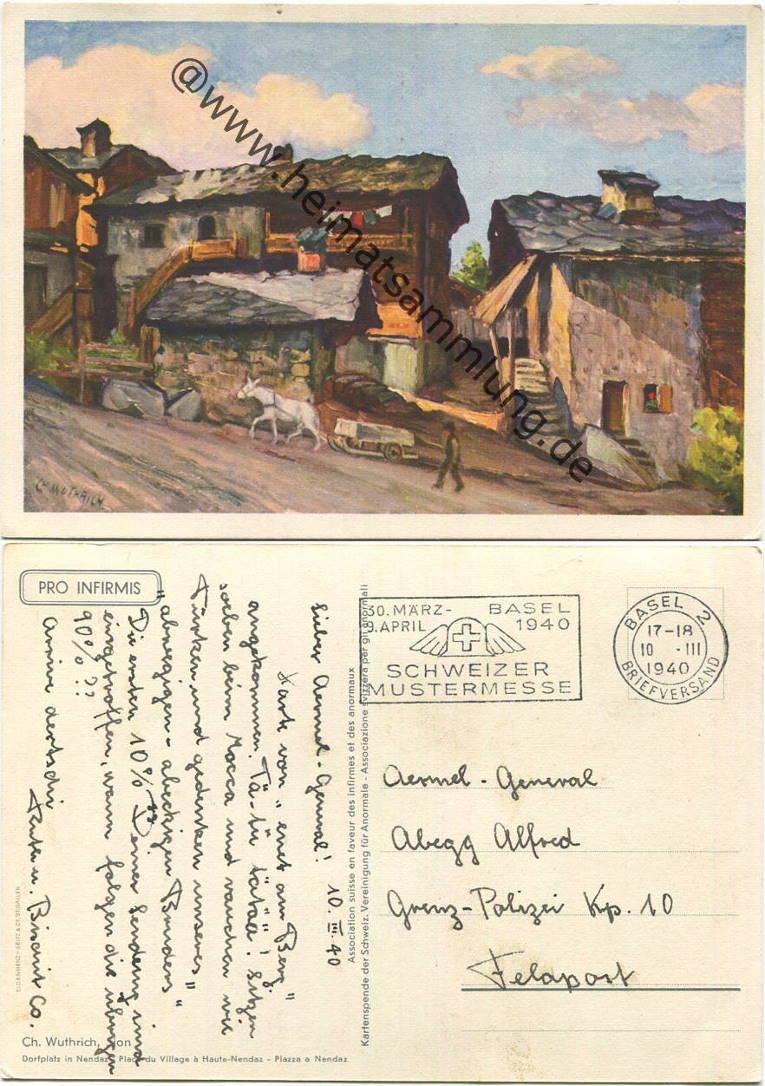 @www.heimatsammlung.de
CH. WUTHRICH
PRO INFIRMIS
30. MÄRZ- BASEL
9. APRIL 1940
SCHWEIZER
MUSTERMESSE
BASEL 2
17-18
10 · III
1940
BRIEFVERSAND
Lieber Aermel-General! 10.III.40
Karte von "enet am Berg"
angekommen. Tä-tü tätää! Sitzen
soeben beim Mocca und rauchen wie
Türken und gedenken unseres
"abnegigen-abeckigen Bundes"
Die ersten 10% Deiner Sendung sind
eingetroffen, wann folgen die übrigen
90%??
Arrive dertschi
u. Biscuit Co.
Association suisse en faveur des infirmes et des anormaux
Kartenspende der Schweiz. Vereinigung für Anormale - Associazione svizzera per gli anormali
Aermel-General
Abegg Alfred
Grenz-Polizei Kp. 10
Feldpost
Ch. Wuthrich, Sion
Dorfplatz in Nendaz - Place du Village à Haute-Nendaz - Piazza a Nendaz